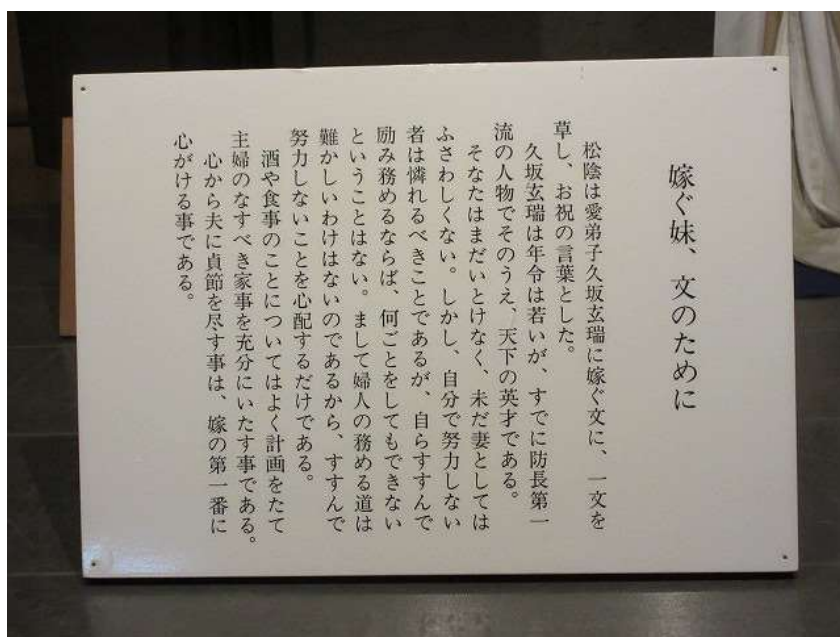 嫁ぐ妹、文のために
松陰は愛弟子久坂玄瑞に嫁ぐ文に、一文を
草し、お祝の言葉とした。
久坂玄瑞は年令は若いが、すでに防長第一
流の人物でそのうえ、天下の英才である。
そなたはまだいとけなく、未だ妻としては
ふさわしくない。しかし、自分で努力しない
者は憐れるべきことであるが、自らすすんで
励み務めるならば、何ごとをしてもできない
ということはない。まして婦人の務める道は
難かしいわけはないのであるから、すすんで
努力しないことを心配するだけである。
酒や食事のことについてはよく計画をたて
主婦のなすべき家事を充分にいたす事である。
心から夫に貞節を尽す事は、嫁の第一番に
心がける事である。